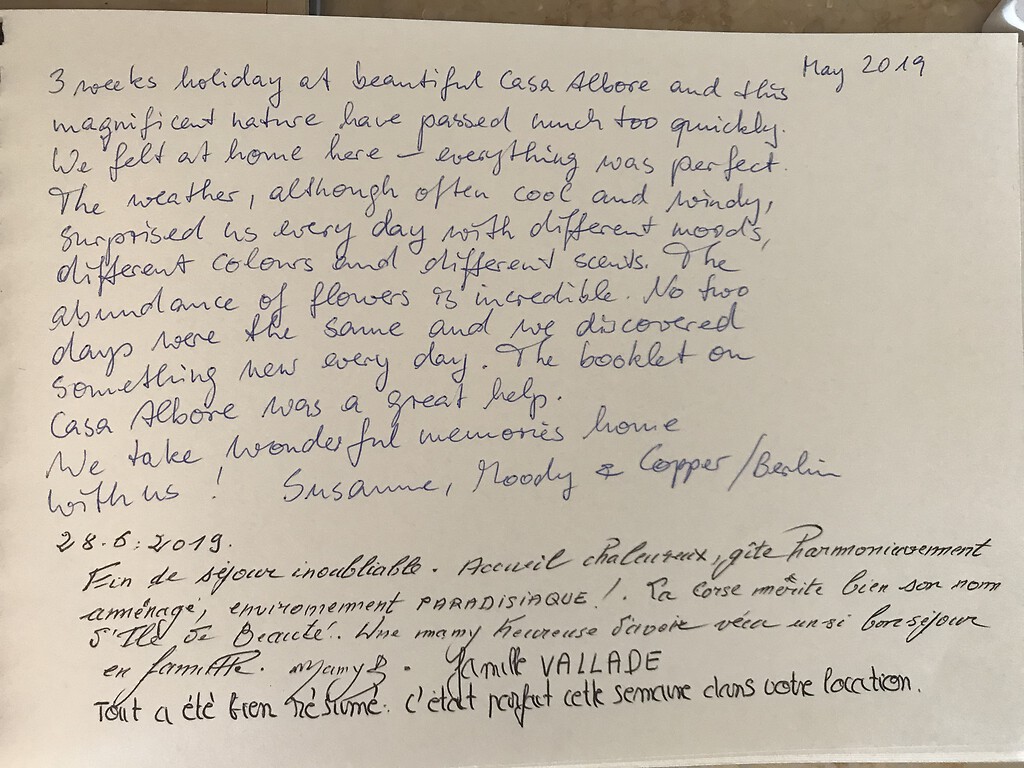 May 2019
3 weeks holiday at beautiful Casa Albore and this
magnificent nature have passed much too quickly.
We felt at home here – everything was perfect.
The weather, although often cool and windy,
surprised us every day with different moods,
different colours and different scents. The
abundance of flowers is incredible. No two
days were the same and we discovered
something new every day. The booklet on
Casa Albore was a great help.
We take wonderful memories home
with us ! Susanne, Moody & Copper / Berlin
28.6.2019.
Fin de séjour inoubliable. Accueil chaleureux, gîte harmonieusement
amménagé, environnement PARADISIAQUE !. La Corse mérite bien son nom
d'Ile de Beauté. Une mamy heureuse d'avoir vécu un si bon séjour
en famille. Mamy . famille VALLADE
Tout a été bien résumé. C'était parfait cette semaine dans votre location.